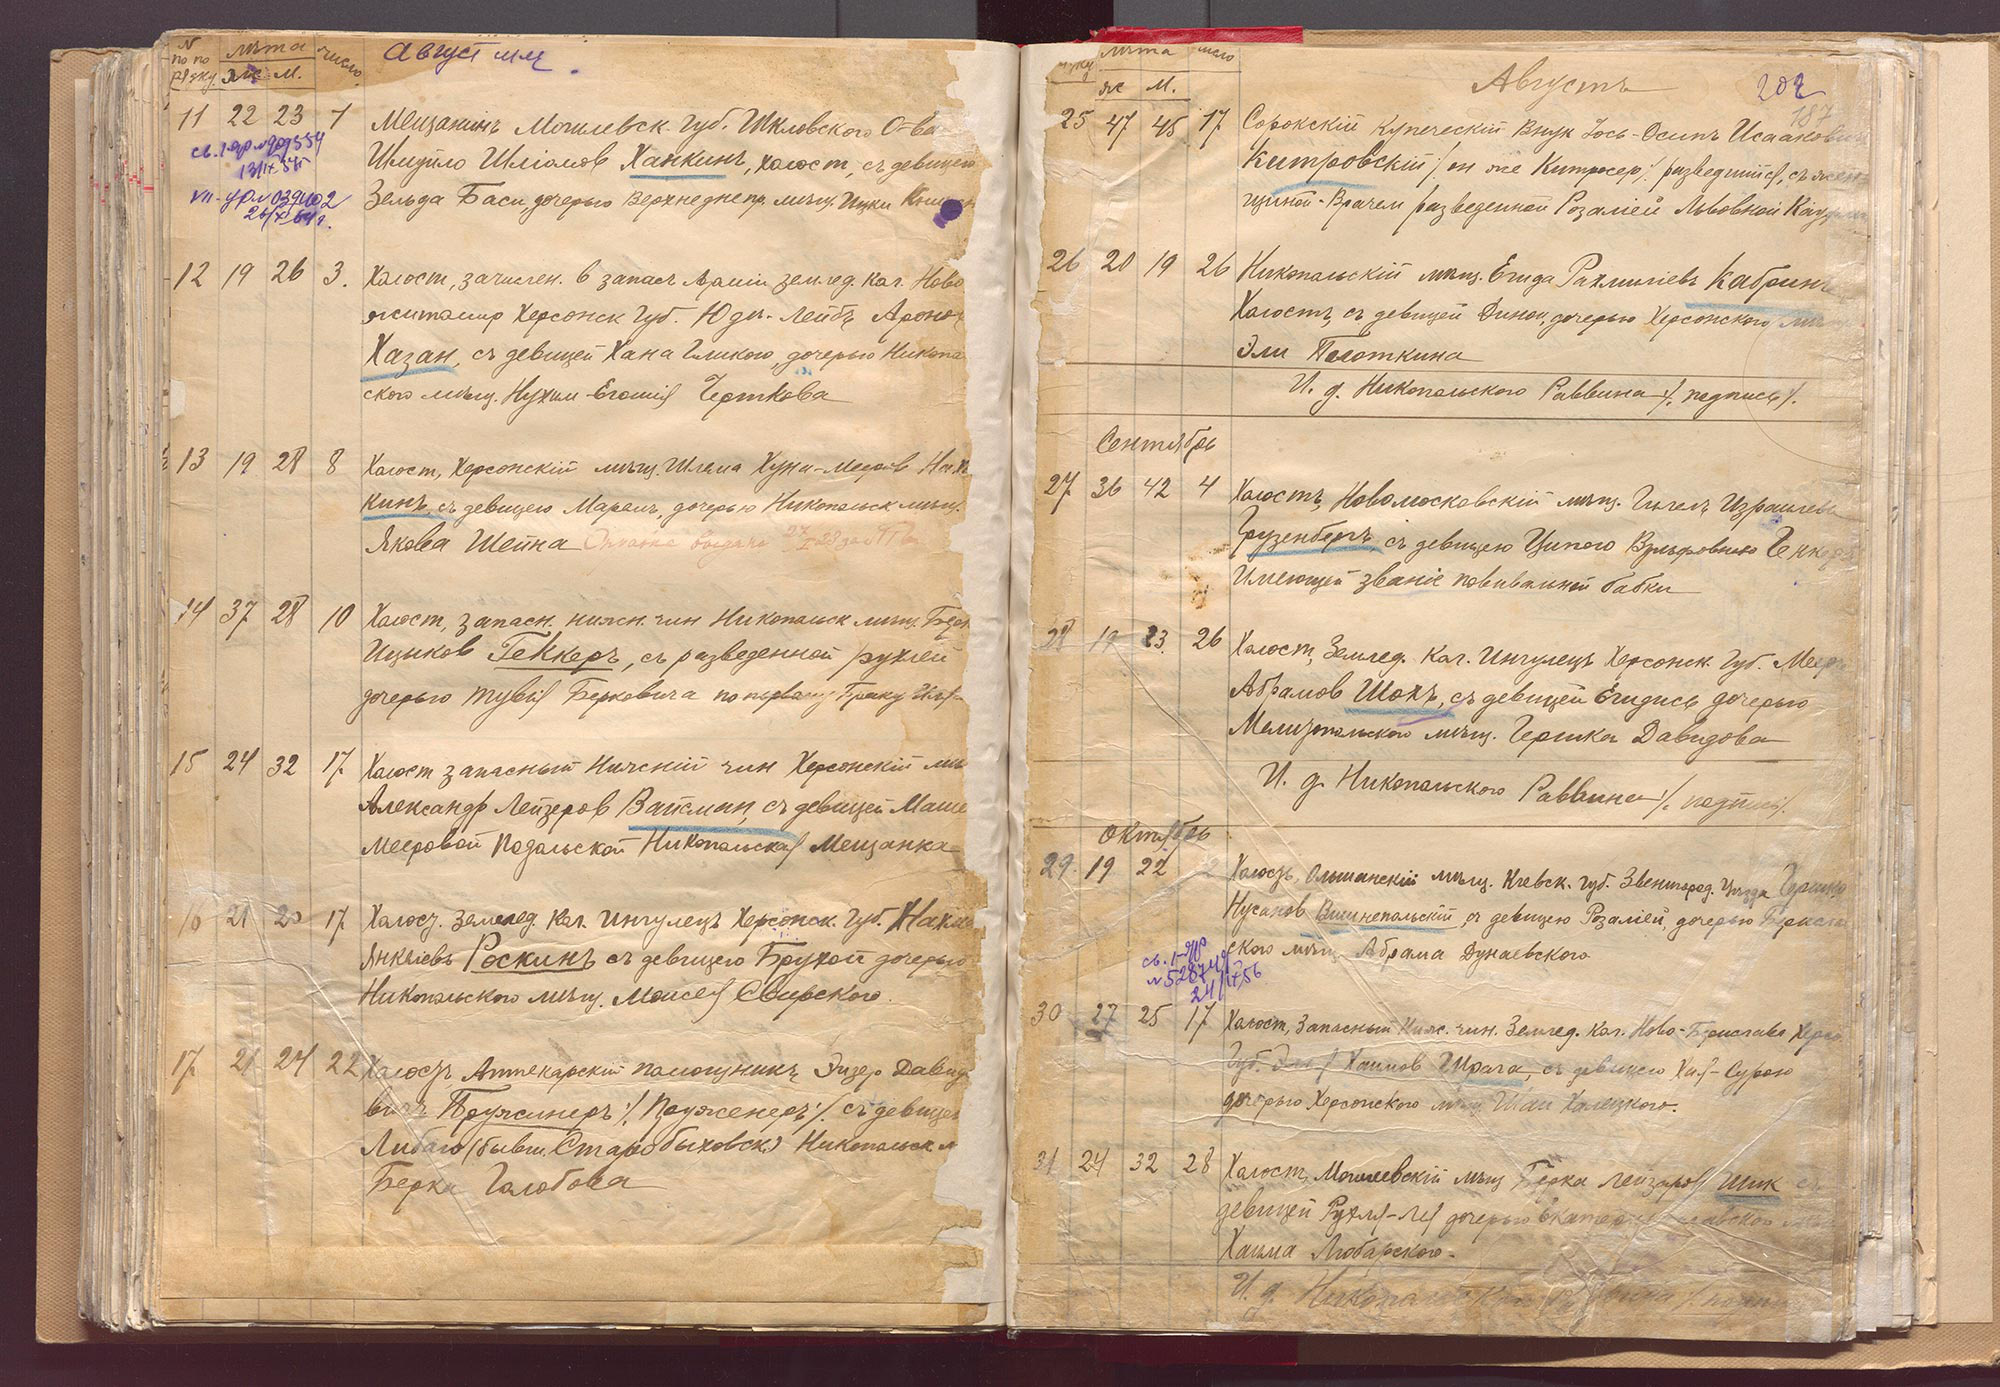 N по по рядку лѣта число Август м-ц
Ж. М.
11 22 23 1 Мещанинъ Могилевск. Губ. Шкловского О-ва
Шмуйло Шліомов Ханкинъ, холост, съ девицею
Зельда Баси, дочерью Верхнеднепр. мѣщ. Ицки
12 19 26 3. Холост, зачислен. в запасъ Арміи землед. кол. Ново
житомир Херсонск Губ. Юда-Лейбъ Аронов
Хазан, съ девицей Хана Гликою, дочерью Никопо
ского мѣщ. Нухим-Егошія Черткова
13 19 28 8 Холост, Херсонскій мѣщ. Шлема Хуна-Мееров
кинъ, съ девицею Марем, дочерью Никопольск мѣщ.
Якова Шейна
14 37 28 10 Холост, запасн. нижн. чин Никопольск мѣщ.
Ицыков Геккеръ, съ разведенной Рухлей
дочерью Тувія Берковича по первому браку
15 24 32 17 Холост запасный Нижній чин Херсонскій мѣ
Александр Лейзеров Вайсман, съ девицей Маше
Мееровой Подольской Никопольская Мещанка
16 21 20 17 Холост. Землед. Кол. Ингулецъ Херсонск. Губ.
Янкелевъ Роскинъ съ девицею Брухой дочерью
Никопольского мѣщ. Моисея Свирского.
17. 21 24 22 Холостъ Аптекарскій помощникъ Эизер Давид
вичъ Пружинеръ /. Пруженеръ ./. съ девицей
Либою (бывш. Старобыховск.) Никопольск м
Берка Голобова
лѣта число
ж М. Августъ 202
187
25 47 45 17 Сорокскій Купеческій Внук Іось-Осипъ Исаакович
Китровскій /. он же Китросер ./. разведшійся, съ жен
щиной-Врачем разведенной Розаліей Львовной
26 20 19 26 Никопольскій мѣщ. Егида Рахмиліевъ Кабринъ
Холостъ, съ девицей Диной, дочерью Херсонского мѣщ
Эли Полоткина
И. д. Никопольского Раввина /. подпись ./.
Сентябрь
27 36 42 4 Холостъ, Новомосковскій мѣщ. Гилелъ Израилевъ
Грузенбергъ съ девицею Ципою Вульфовною
Имеющей званіе повивальной бабки
28 19 23. 26 Холост, Землед. Кол. Ингулецъ Херсонск. Губ. Меер
Абрамов Шохъ, съ девицей Егидись дочерью
Мелитопольского мѣщ. Гершка Давидова
И. д. Никопольского Раввина /. подпись /.
Октябрь
29. 19 22 Холостъ, Ольшанскій мѣщ. Кіевск. Губ. Звенигород. Уѣзда Гершко
Нусанов Вишнепольскій, съ девицею Розаліей, дочерью
ского мѣщ Абрама Дунаевского
30 27 25 17 Холост, Запасный Ниж. чин. Землед. Кол. Ново-Берислава Херсо
Губ. Хаимов Шрага, съ девицею Хая-Сурою
дочерью Херсонского мѣщ Халецкого.
31 24 32 28 Холост, Могилевскій мѣщ Берка Лейзаров Шик съ
девицей Рухля-Лея дочерью Екатеринославского мѣщ
Хаима Любарского.
И. д. Никопольского Раввина